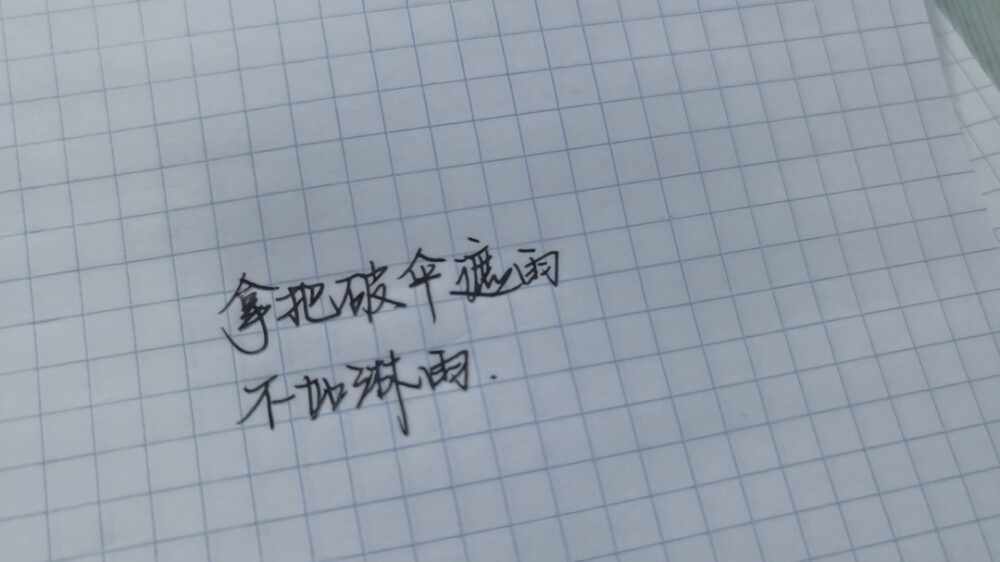 拿把破伞遮雨
不如淋雨.